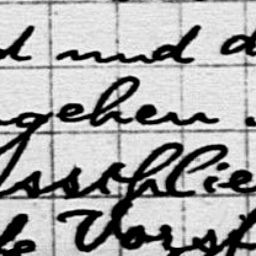 d und d
ngehen.
sschlie
le Vorst